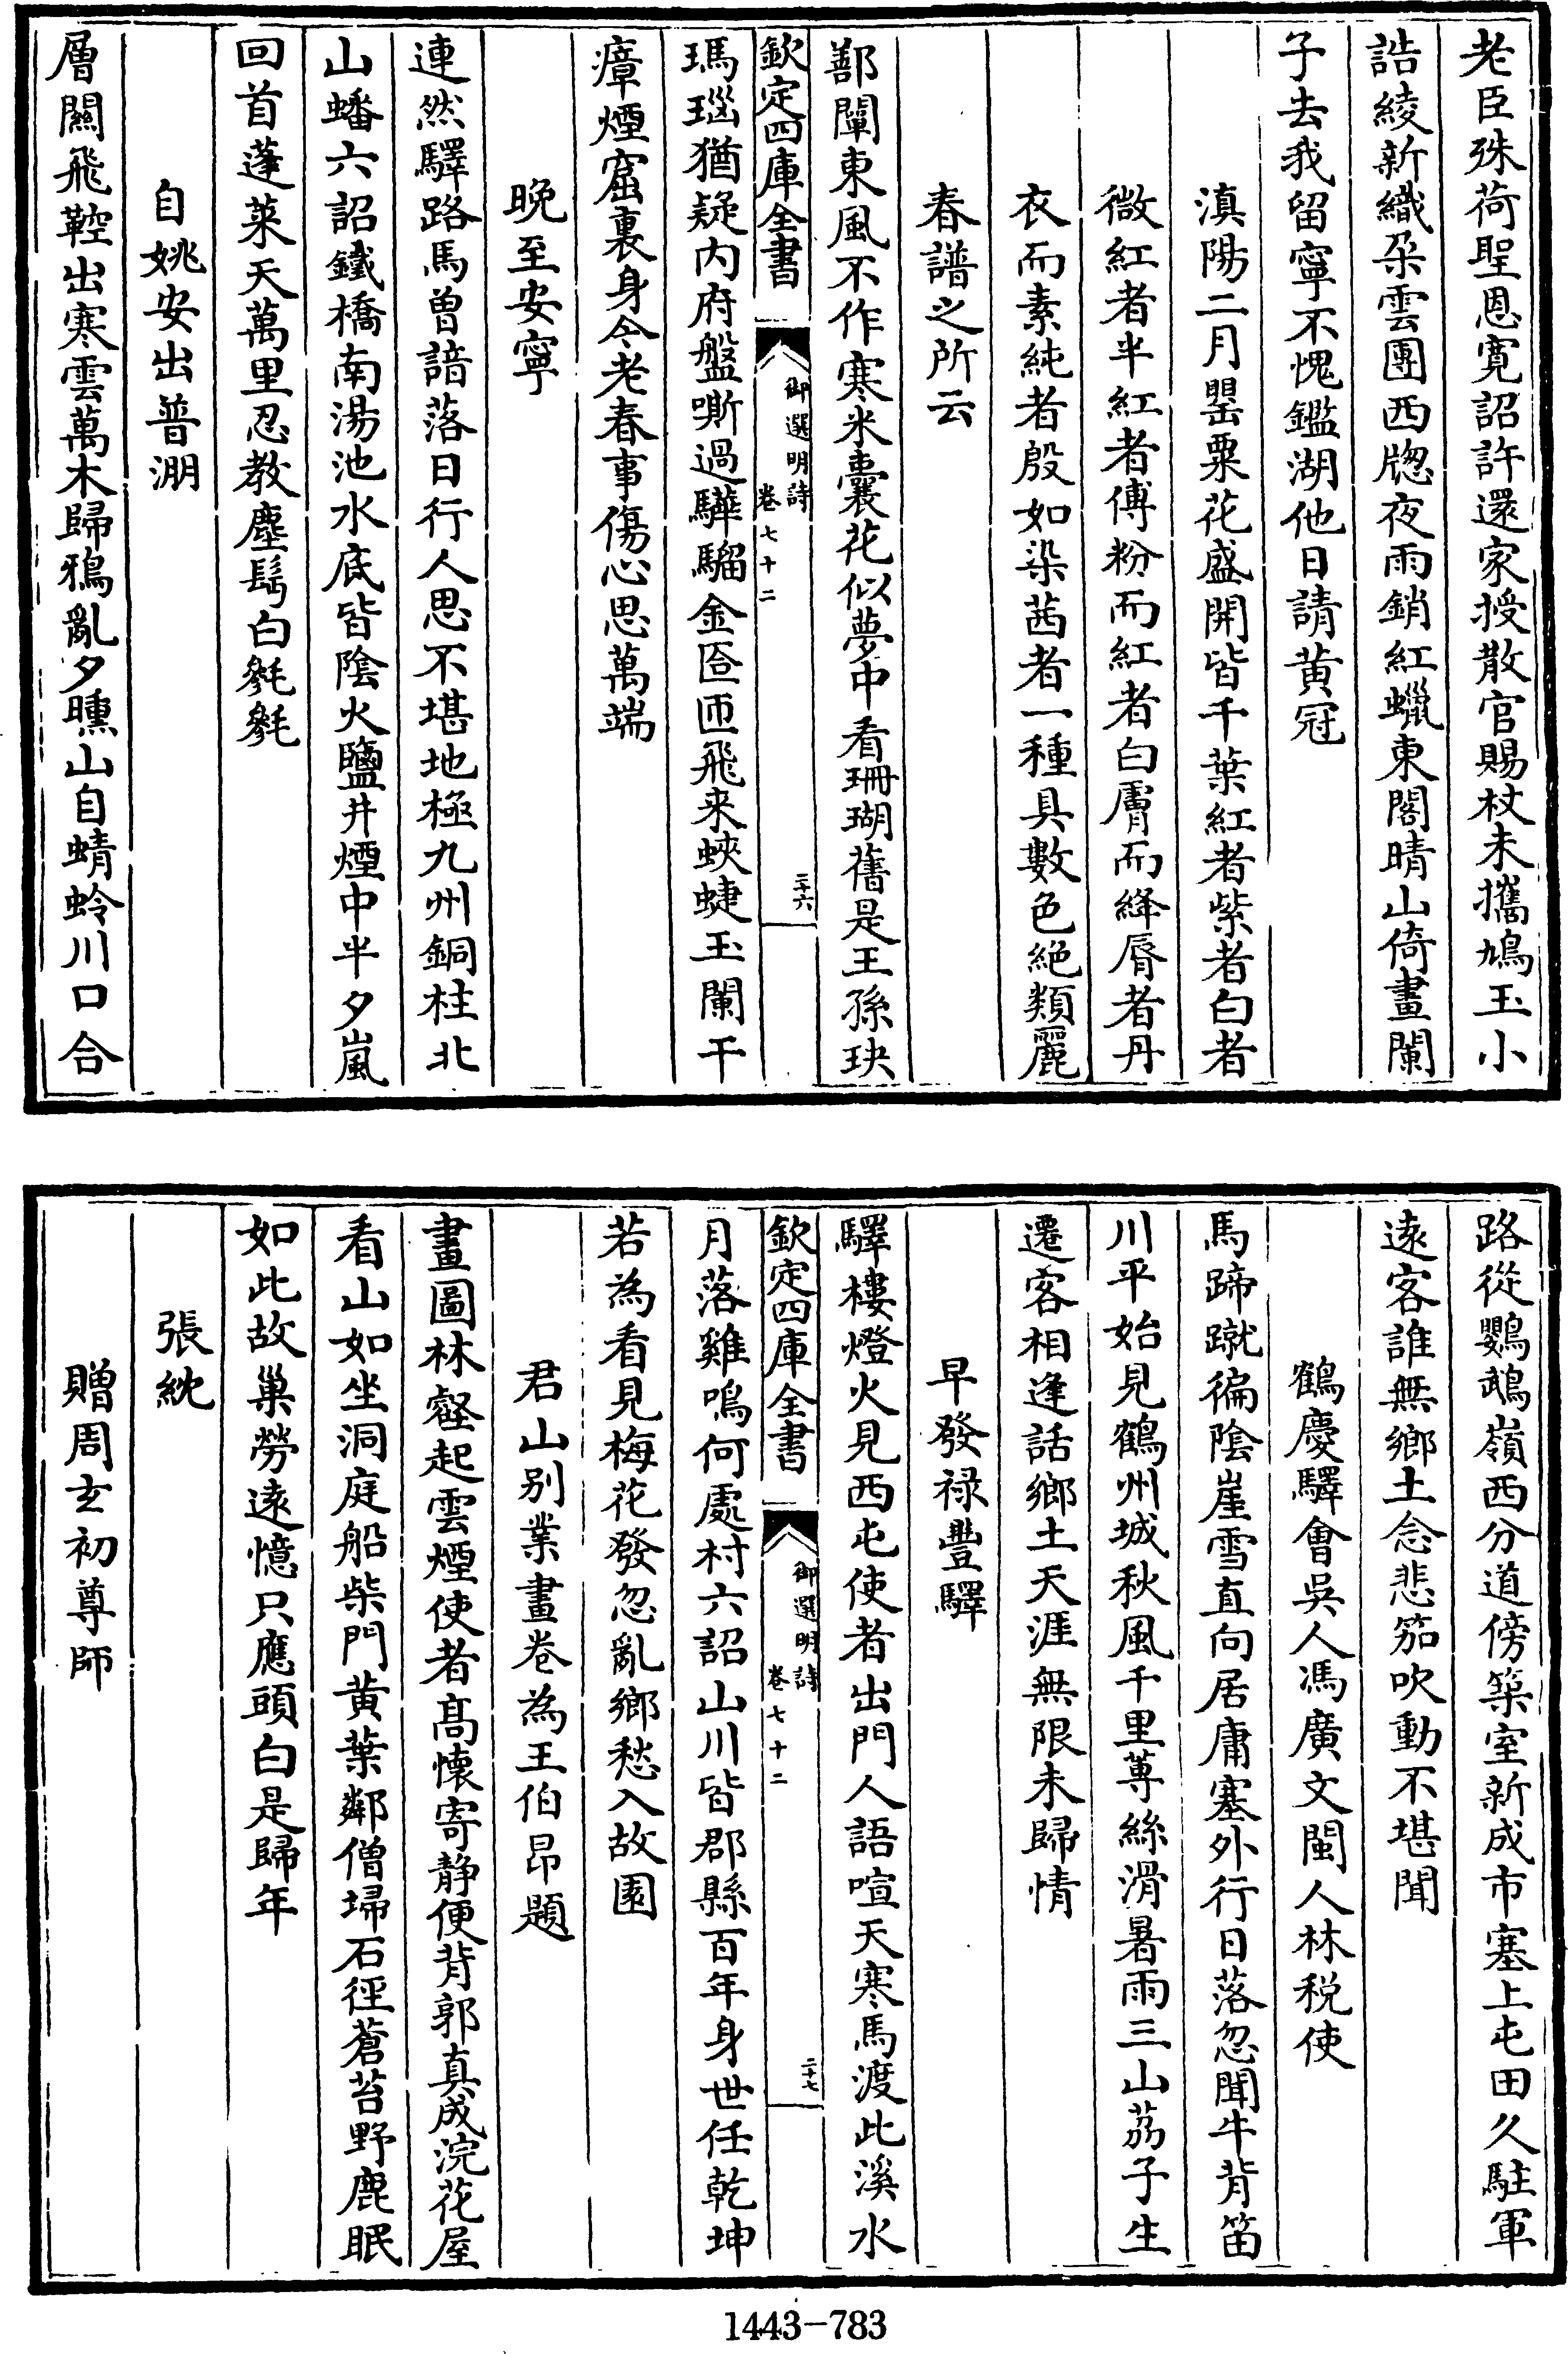 老臣殊荷聖恩寛詔許還家授散官賜杖未攜鳩玉小
誥綾新織朶雲團西牕夜雨銷紅蠟東閣晴山倚畫闌
子去我留寧不愧鑑湖他日請黄冠
滇陽二月罌粟花盛開皆千葉紅者紫者白者
微紅者半紅者傅粉而紅者白膚而絳脣者丹
衣而素純者殷如染茜者一種具數色絶類麗
春譜之所云
鄯闡東風不作寒米囊花似夢中看珊瑚舊是王孫玦
欽定四庫全書
御選明詩
卷七十二
二十六
瑪瑙猶疑内府盤嘶過驊騮金匼匝飛来蛺蜨玉闌干
瘴煙窟裏身今老春事傷心思萬端
晚至安寧
連然驛路馬曽諳落日行人思不堪地極九州銅柱北
山蟠六詔鐵橋南湯池水底皆陰火鹽井煙中半夕嵐
回首蓬莱天萬里忍教塵鬢白毿毿
自姚安出普淜
層闗飛鞚出寒雲萬木歸鴉亂夕曛山自蜻蛉川口合
路從鸚鵡嶺西分道傍築室新成市塞上屯田久駐軍
逺客誰無鄉土念悲笳吹動不堪聞
鶴慶驛會吳人馮廣文閩人林税使
馬蹄蹴徧陰崖雪直向居庸塞外行日落忽聞牛背笛
川平始見鶴州城秋風千里蓴絲滑暑雨三山荔子生
遷客相逢話鄉土天涯無限未歸情
早發禄豐驛
驛樓燈火見西屯使者出門人語喧天寒馬渡此溪水
欽定四庫全書
御選明詩
卷七十二
二十七
月落雞鳴何處村六詔山川皆郡縣百年身世任乾坤
若為看見梅花發忽亂鄉愁入故園
君山别業畫卷為王伯昂題
畫圖林壑起雲煙使者髙懐寄静便背郭真成浣花屋
看山如坐洞庭船柴門黄葉鄰僧埽石徑蒼苔野鹿眠
如此故巢勞逺憶只應頭白是歸年
張紞
贈周玄初尊師
1443-783